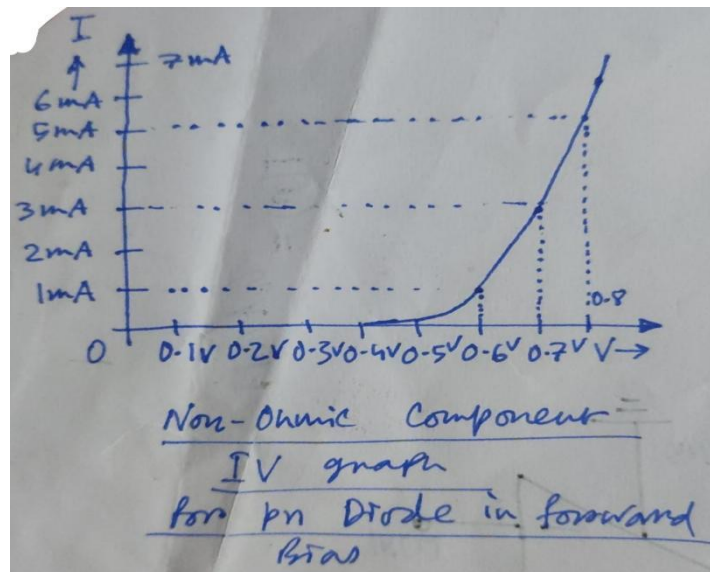 I
7mA
6mA
5mA
4mA
3mA
2mA
1mA
0.8
0 0.1V 0.2V 0.3V 0.4V 0.5V 0.6V 0.7V V→
Non-Ohmic Component
IV graph
for pn Diode in forward
Bias